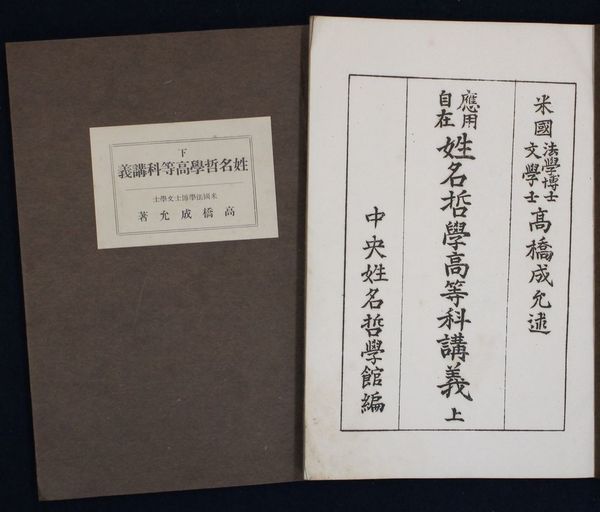 下
義講科等高學哲名姓
士學文士師學法國米
著 允成橋高
米國法學博士文學士髙橋成允述
應用自在姓名哲學高等科講義上
中央姓名哲學館編